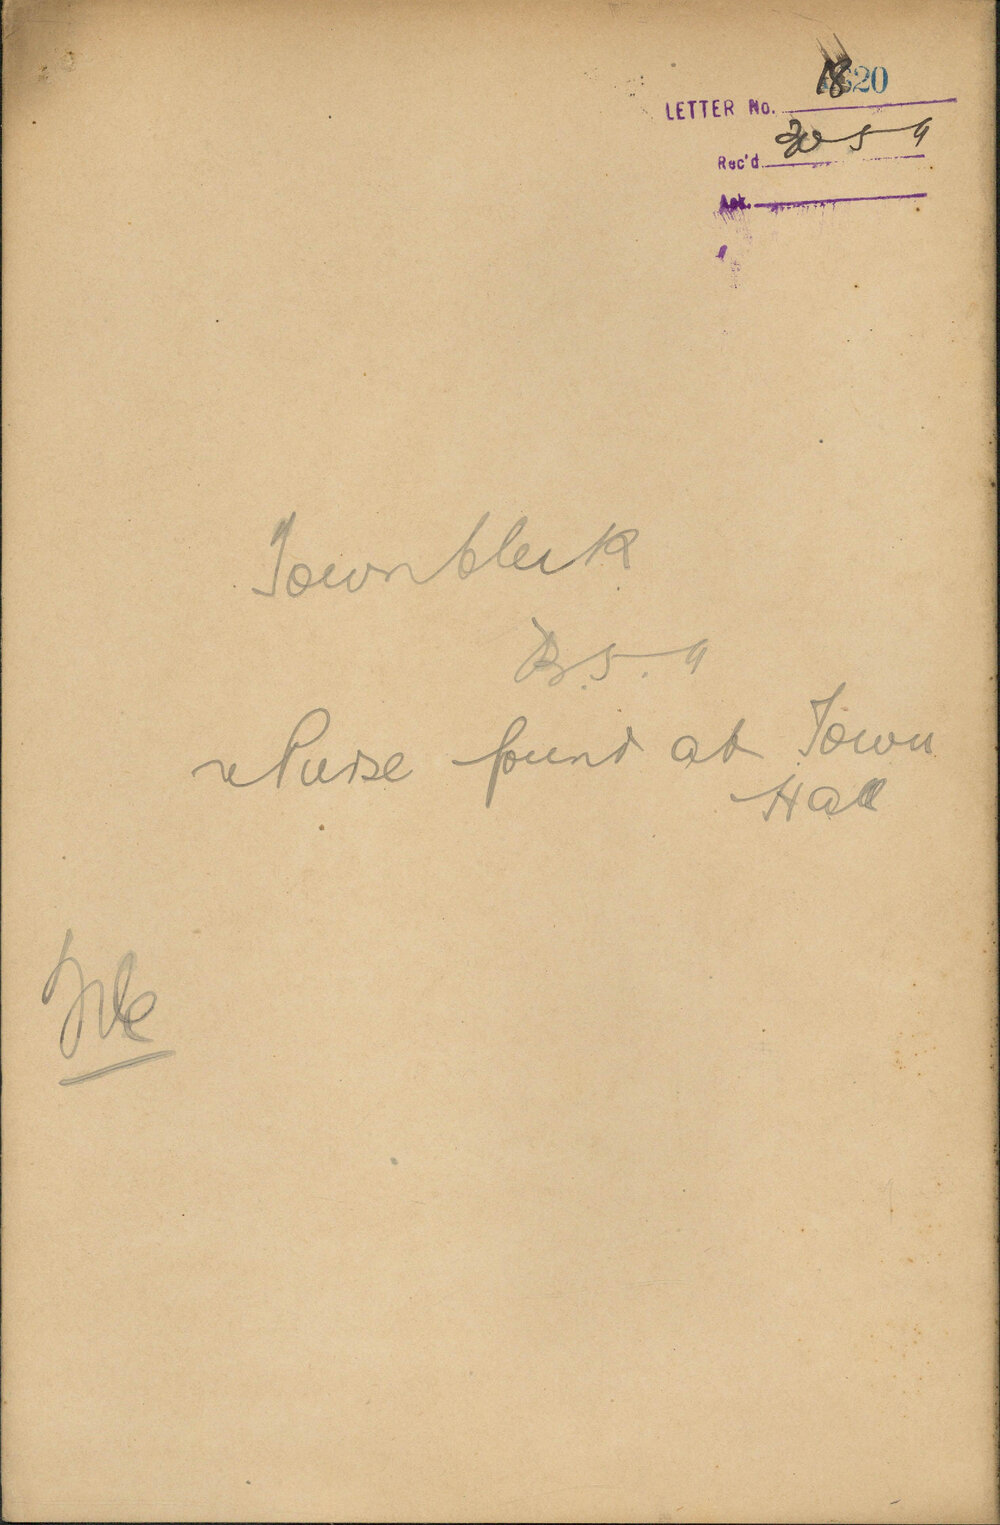 LETTER No. 1820
Rec'd 20-5-9
Ack.
Town Clerk
5.9
re Purse found at Town
Hall
File